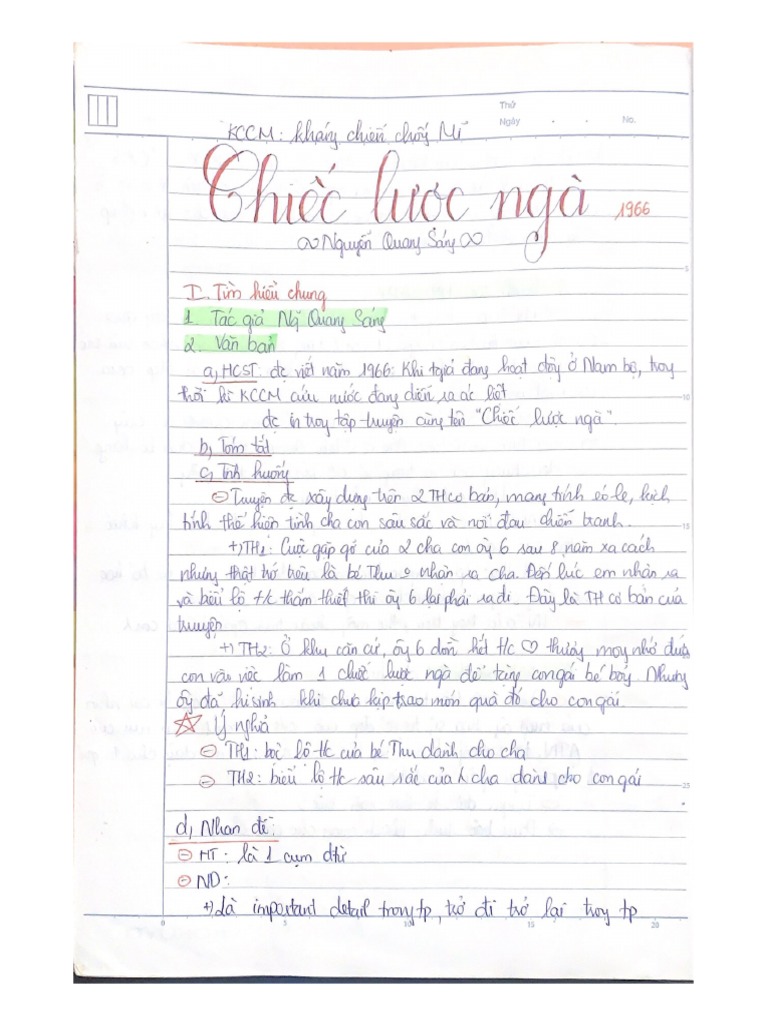 Thứ
Ngày . . No.
KCCM: kháng chiến chống Mĩ
Chiếc lược ngà 1966
∞ Nguyễn Quang Sáng ∞
I. Tìm hiểu chung
1. Tác giả Ng̃ Quang Sáng
2. Văn bản
a, HCST: đc viết năm 1966: Khi tgiả đang hoạt độg ở Nam bộ, trog
thời kì KCCM cứu nước đang diễn ra ác liệt
đc in trog tập truyện cùng tên "Chiếc lược ngà".
b, Tóm tắt
c, Tình huống
⊖ Truyện đc xây dựng trên 2 TH cơ bản, mang tính éo le, kịch
tính thể hiện tình cha con sâu sắc và nỗi đau chiến tranh.
+) TH1: Cuộc gặp gỡ của 2 cha con ôg 6 sau 8 năm xa cách
nhưng thật trớ trêu là bé Thu nhận ra cha. Đến lúc em nhận ra
và biểu lộ t/c thắm thiết thì ôg 6 lại phải ra đi. Đây là TH cơ bản của
truyện
+) TH2: Ở khu căn cứ, ôg 6 dồn hết t/c ♡ thươg mog nhớ đứa
con vào việc làm 1 chiếc lược ngà để tặng con gái bé bỏg. Nhưng
ôg đã hi sinh khi chưa kịp trao món quà đó cho con gái
☆ Ý nghĩa
⊖ TH1: bộc lộ t/c của bé Thu dành cho cha
⊖ TH2: biểu lộ t/c sâu sắc của cha dành cho con gái
d, Nhan đề
⊖ HT: là 1 cụm dtừ
⊖ ND:
+) Là important detail trong tp, trở đi trở lại trog tp
5
10
15
25
0 5 10 15 20